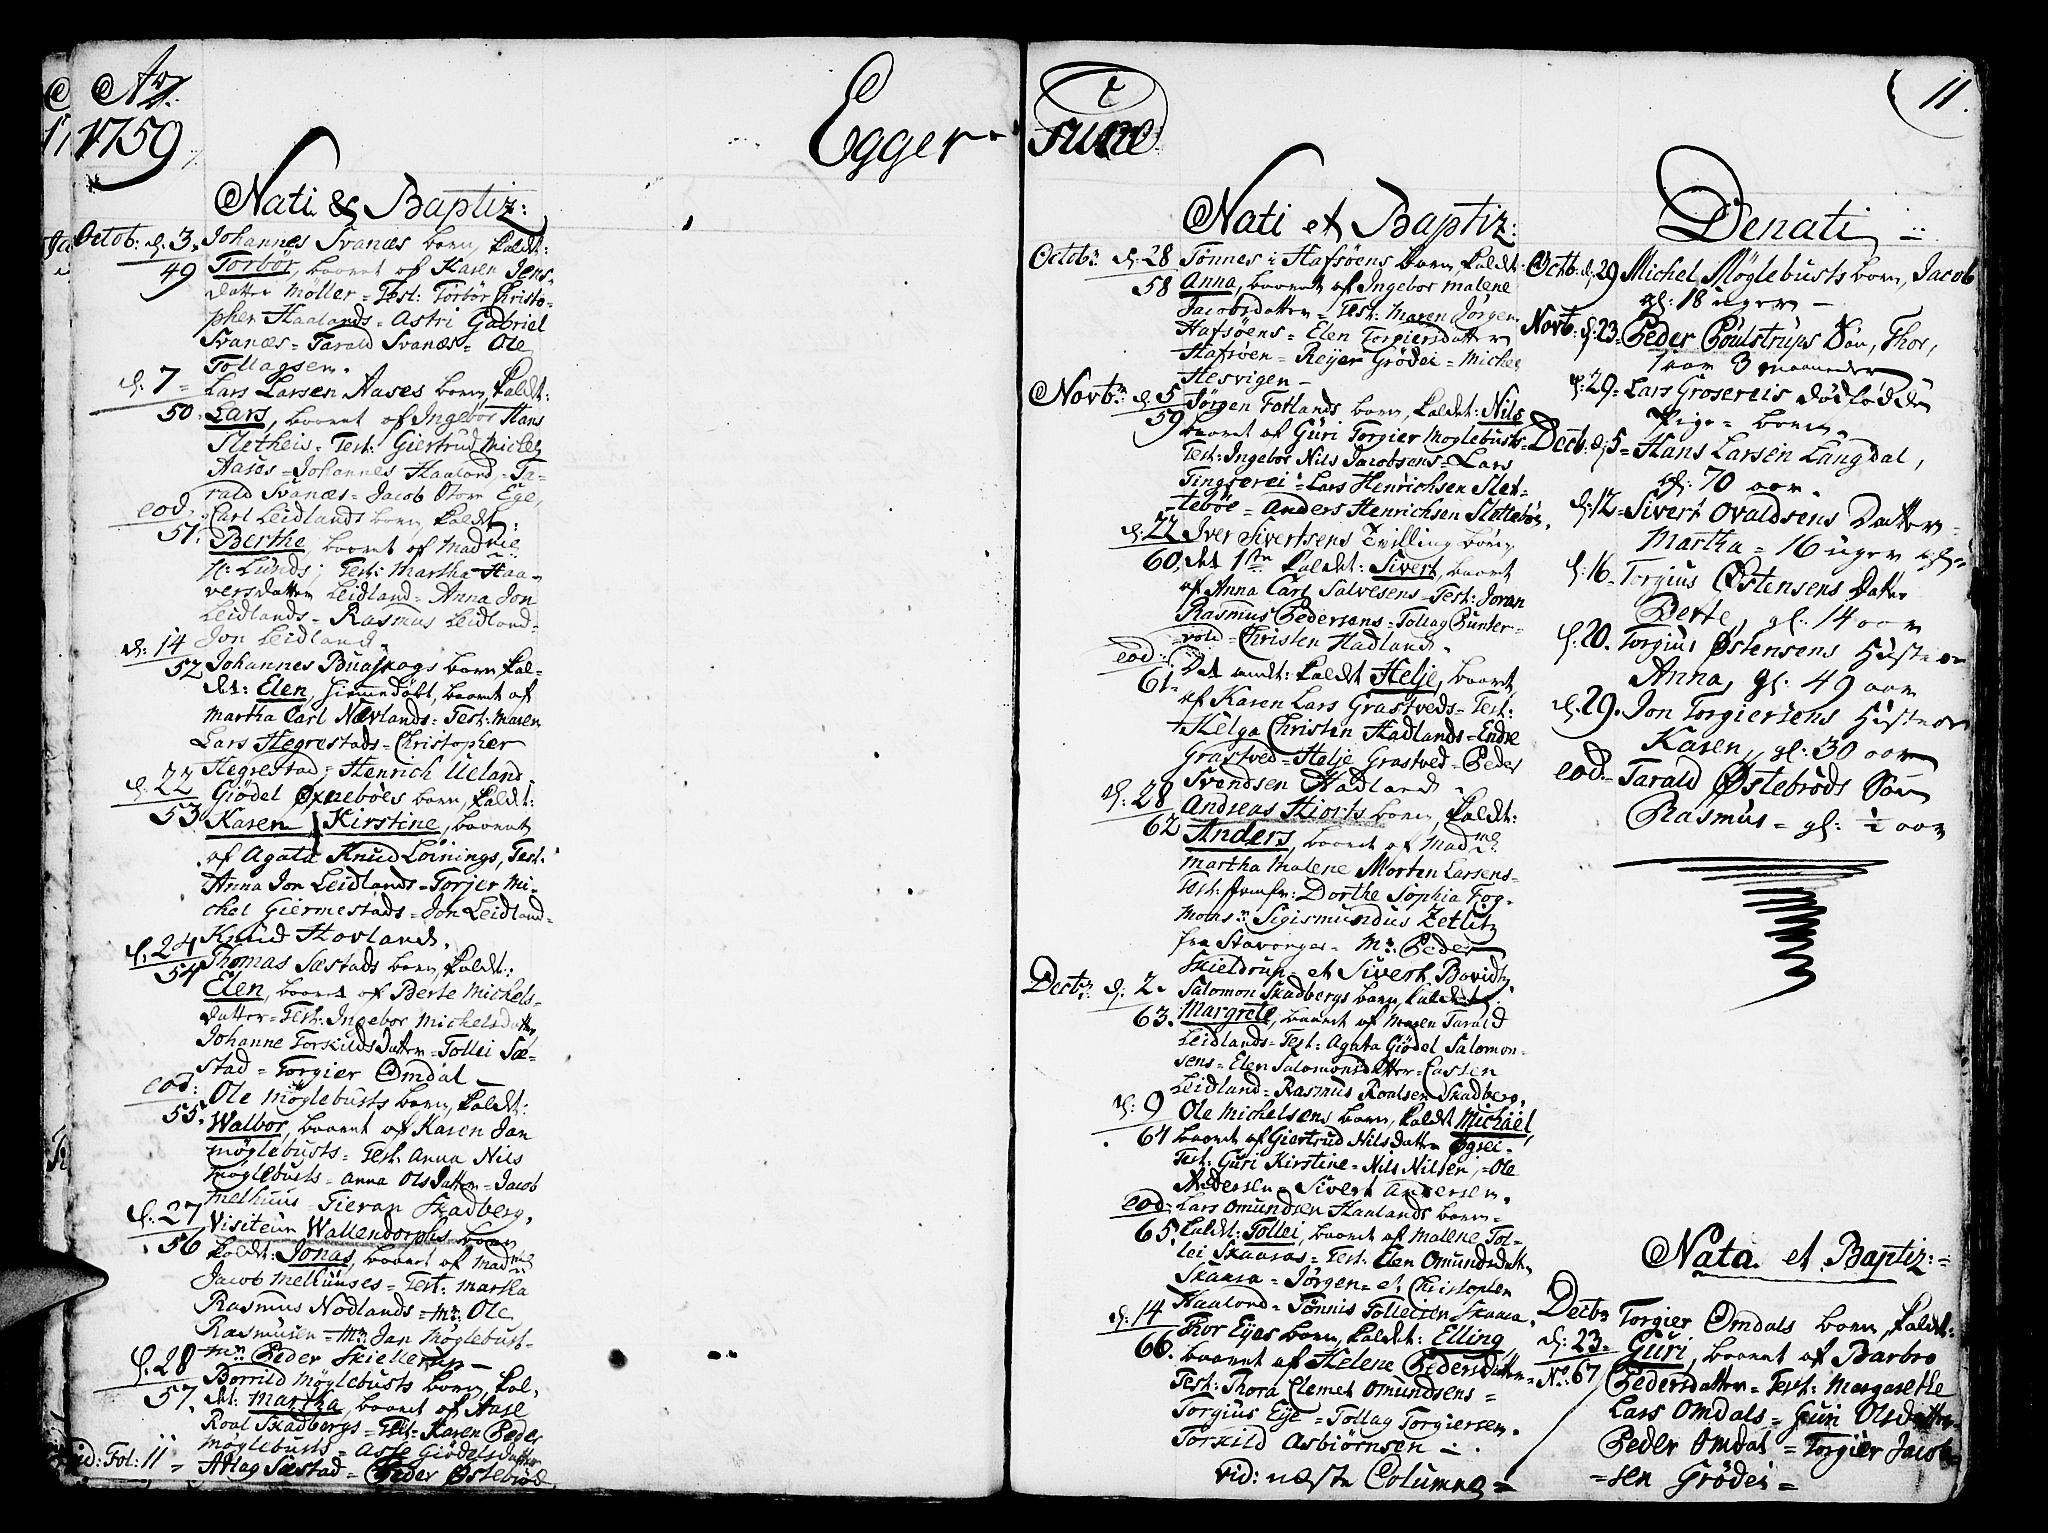 Aō.
1759
Egger-
sund
11.
Nati & Baptiz:
Octob: d. 3.
49
Johannes Svanæs barn, kaldt:
Torbor, baaret af Karen Jens-
datter Møller = Test: Torbør Christo-
pher Haalands = Astri Gabriel
Svanæs = Tarald Svanæs = Ole
Tollagsen.
d: 7 =
50.
Lars Larsen Aases barn, kaldt:
Lars, baaret af Ingebor Hans
Sletheis = Test: Giertrud Michel
Aases = Johannes Haaland = Ta-
rald Svanæs = Jacob Olsen Ege,
eod.
51.
Carl Leidlands barn, kaldt:
Berthe, baaret af Mad
Lunds; Test: Martha Haa-
versdatter Leidland = Anna Jon
Leidlands = Rasmus Leidland =
Jon Leidland.
d: 14
52
Johannes Buaskogs barn kal-
det: Elen, hiemmedøbt, baaret af
Martha Carl Nævlands = Test: Maren
Lars Hegrestads = Christopher
Hegrestad = Henrich Ueland.
d: 22
53
Giødel Øxnebøes barn, kaldt:
Karen Kirstine, baaret
af Agata Knud Løinings, Test:
Anna Jon Leidlands = Torjer Mi-
chel Giermestads = Jon Leidland =
Knud Hovland.
d. 24
54
Thomas Sæstads barn, kaldt:
Elen, baaret af Berte Michels-
datter = Test: Ingebor Michelsdatter
Johanne Torkildsdatter = Tollei Sæ-
stad = Torgier Omdal -
eod:
55.
Ole Møglebusts barn, kaldt:
Walbor, baaret af Karen Jan
Møglebusts = Test: Anna Nils
Møglebusts = Anna Olsdatter = Jacob
Melhuus = Tieran Skadberg.
d: 27
56
Visiteur Wallendorphs barn
kaldt: Jonas, baaret af Mad
Jacob Melhuuses = Test: Martha
Rasmus Nodlands = Mr: Ole
Rasmusen = Mr: Jan Møglebust =
Mr: Peder Skiellerup -
d. 28
57.
Borrild Møglebusts barn, kal-
det: Martha, baaret af Aase
Roal Skadbergs = Test: Karen Peder
Møglebusts = Asse Giødelsdatter
Atlag Sæstad = Peder Østebrød.
vid: Fol: 11 =
Nati et Baptiz:
Octobr: d: 28
58
Tønnes i Hafsøens barn, kaldt:
Anna, baaret af Ingebor Malene
Jacobsdatter = Test: Maren Jørgen
Hafsøens = Elen Torgiersdatter
Hafsøen = Reijer Grødei = Michel
Hesvigen -
Novbr: d. 5
59
Jørgen Fotlands barn, kaldet: Nils
baaret af Guri Torgier Moglebusts =
Test: Ingebor Nils Jacobsens = Lars
Tingserei = Lars Henrichsen Slet-
tebøe = Anders Henrichsen Slettebø.
d: 22
60.
Iver Sivertsens Zwilling børn,
det 1ste kaldet: Sivert, baaret
af Anna Carl Salvesens = Test: Joran
Rasmus Pedersens = Tollag Punter-
vold = Christen Hadland.
eod:
61.
Det andt: kaldt Helje, baaret
af Karen Lars Grastveds = Test:
+ Helga Christen Hadlands = Endre
Grastved = Helje Grastved = Peder
Svendsen Hadland.
d: 28
62
Andreas Hiorts barn, kaldt:
Anders, baaret af Mad
Martha Malene Morten Larsens =
Test: Jomfr: Dorthe Sophia Fog-
Mons: Sigismundus Zetlitz
fra Stavanger = Mr: Peder
Skieldrup = et Sivert Bovidtz.
Decbr: d: 2.
63.
Salomon Skadbergs barn, kaldet:
Margrete, baaret af Maren Tarald
Leidlands = Test: Agata Giødel Salomon-
sens = Elen Salomonsdatter = Casten
Leidland = Rasmus Roalsen Skadberg.
d: 9
64
Ole Michelsens barn, kaldt Michael,
baaret af Giertrud Nilsdatter Egrei =
Test: Guri Kirstine = Nils Nilsen, = Ole
Andersen = Sivert Andersen.
eod:
65.
Lars Omundsen Haalands barn =
kaldt: Tollei, baaret af Malene Tol-
lei Skaaras = Test: Elen Omundsdatter
Skaara = Jørgen = et Christopher
Haaland = Tønnis Tolleisen Skaara.
d: 14
66.
Thor Eyes barn, kaldet: Elling
baaret af Helene Pedersdatter =
Test: Thora Clemet Omundsens =
Torgius Eye = Tollag Torgiersen.
Torkild Asbiørnsen -
vid: næste Columne =
Denati
Octb: d. 29 Michel Møglebusts barn, Jacob
gl: 18 uger -
Novb: d: 23 = Peder Poulstrups Søn, Thor,
1 aar 3 maaneder
d: 29 = Lars Grosereis dødfødde
Pige = barn.
Decb: d. 5 = Hans Larsen Langdal,
gl: 70 aar.
d: 12 = Sivert Ovaldsens Datter
Martha = 16 uger gl =
d: 16 = Torgius Østensens Datter
Berte, gl. 14 aar
d. 20. Torgius Østensens Hustroe
Anna, gl: 49 aar
d. 29. Jon Torgiersens Hustroe
Karen, gl: 30 aar
eod = Tarald Østebrøds Søn
Rasmus = gl: ½ aar
Nata et Baptiz:
Decbr
d: 23 =
No: 67
Torgier Omdals barn, kaldt:
Guri, baaret af Barbro
Pedersdatter = Test: Margarethe
Lars Omdals = Guri Olsdatter
Peder Omdal = Torgier Jacob-
= sen Grødei =